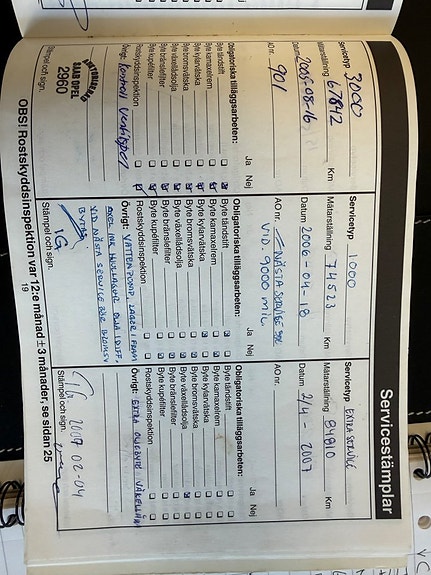 Servicestämplar
Servicetyp 3000
Mätarställning 67842 Km
Datum 2005-08-16
AO nr. 901
Obligatoriska tilläggsarbeten: Ja Nej
Byte tändstift
Byte kamaxelrem
Byte kylarvätska
Byte bromsvätska
Byte växellådsolja
Byte bränslefilter
Byte kupéfilter
Rostskyddsinspektion
Övrigt:
Stämpel och sign.
SAAB OPEL
2960
Servicetyp 1000
Mätarställning 74523 Km
Datum 2006-04-18
AO nr. NÄSTA SERVICE
VID. 9000 MIL.
Obligatoriska tilläggsarbeten: Ja Nej
Byte tändstift
Byte kamaxelrem
Byte kylarvätska
Byte bromsvätska
Byte växellådsolja
Byte bränslefilter
Byte kupéfilter
Rostskyddsinspektion
Övrigt: VATTENPUMP, LAGER I FRAM
VID NÄSTA SERVICE BÖR
BYTAS
Stämpel och sign.
Servicetyp EXTRA SERVICE
Mätarställning 84810 Km
Datum 2/4 - 2007
AO nr.
Obligatoriska tilläggsarbeten: Ja Nej
Byte tändstift
Byte kamaxelrem
Byte kylarvätska
Byte bromsvätska
Byte växellådsolja
Byte bränslefilter
Byte kupéfilter
Rostskyddsinspektion
Övrigt: EXTRA
2007 02-04
Stämpel och sign.
OBS! Rostskyddsinspektion var 12:e månad ± 3 månader, se sidan 25
19